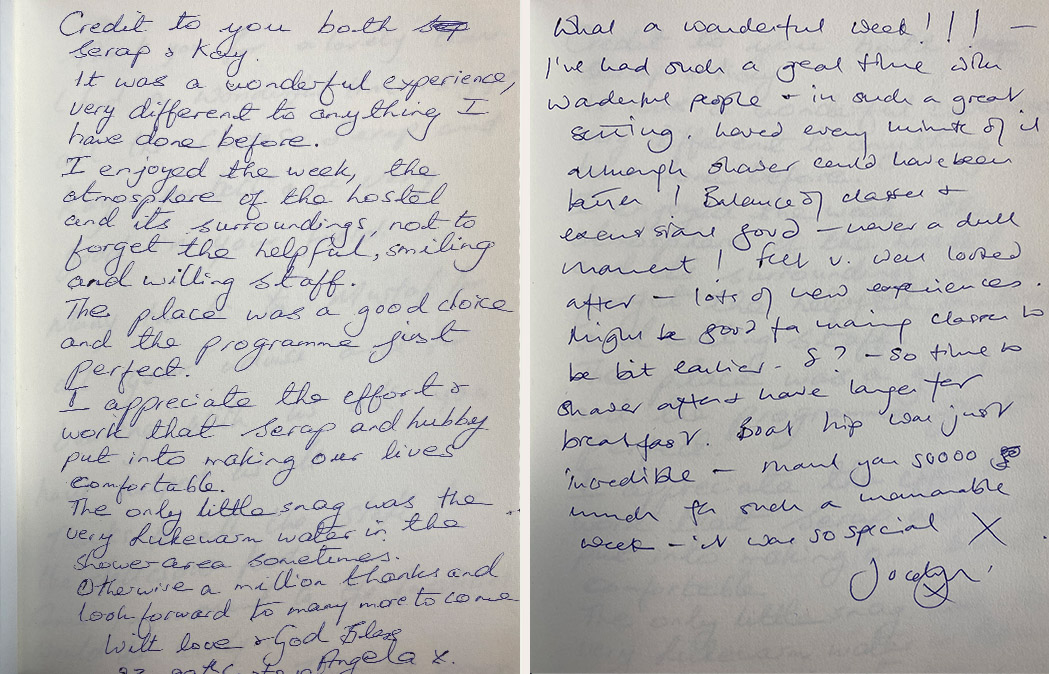 Credit to you both
Serap & Kay.
It was a wonderful experience,
very different to anything I
have done before.
I enjoyed the week, the
atmosphere of the hostel
and its surroundings, not to
forget the helpful, smiling
and willing staff.
The place was a good choice
and the programme just
perfect.
I appreciate the effort &
work that Serap and hubby
put into making our lives
comfortable.
The only little snag was the
very lukewarm water in the
shower area sometimes.
Otherwise a million thanks and
look forward to many more to come
With love & God Bless
Angela x.
What a wonderful week!!! —
I've had such a great time with
wonderful people - in such a great
setting. Loved every minute of it
although shower could have been
better! Balance of classes +
excursions good - never a dull
moment! Feel v. well looked
after - lots of new experiences.
Might be good for morning classes to
be bit earlier - 8? - so time to
shower after + have longer for
breakfast. Boat trip was just
incredible - thank you soooo
much for such a memorable
week - it was so special X
Jocelyn